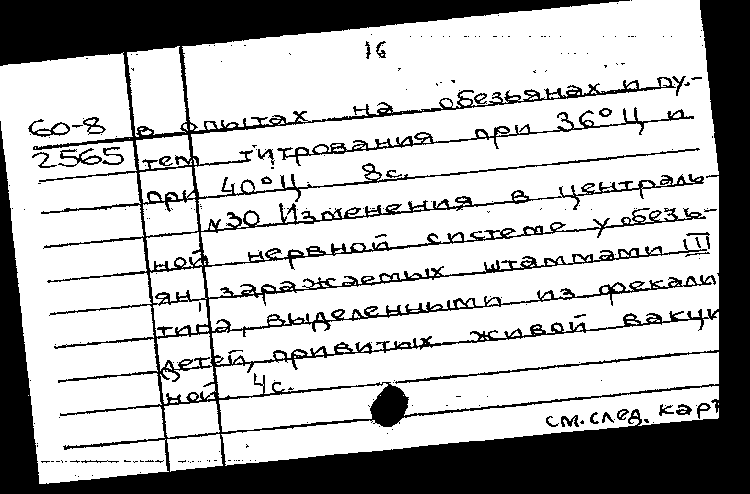 16
60-8 в опытах на обезьянах и пу-
2565 тем титрования при 36° Ц и
при 40° Ц. 8с.
№30 Изменения в централь-
ной нервной системе у обезь-
ян, заражаемых штаммами III
типа, выделенными из фекали
детей, привитых живой вакци
ной. 4с.
см. след. карт